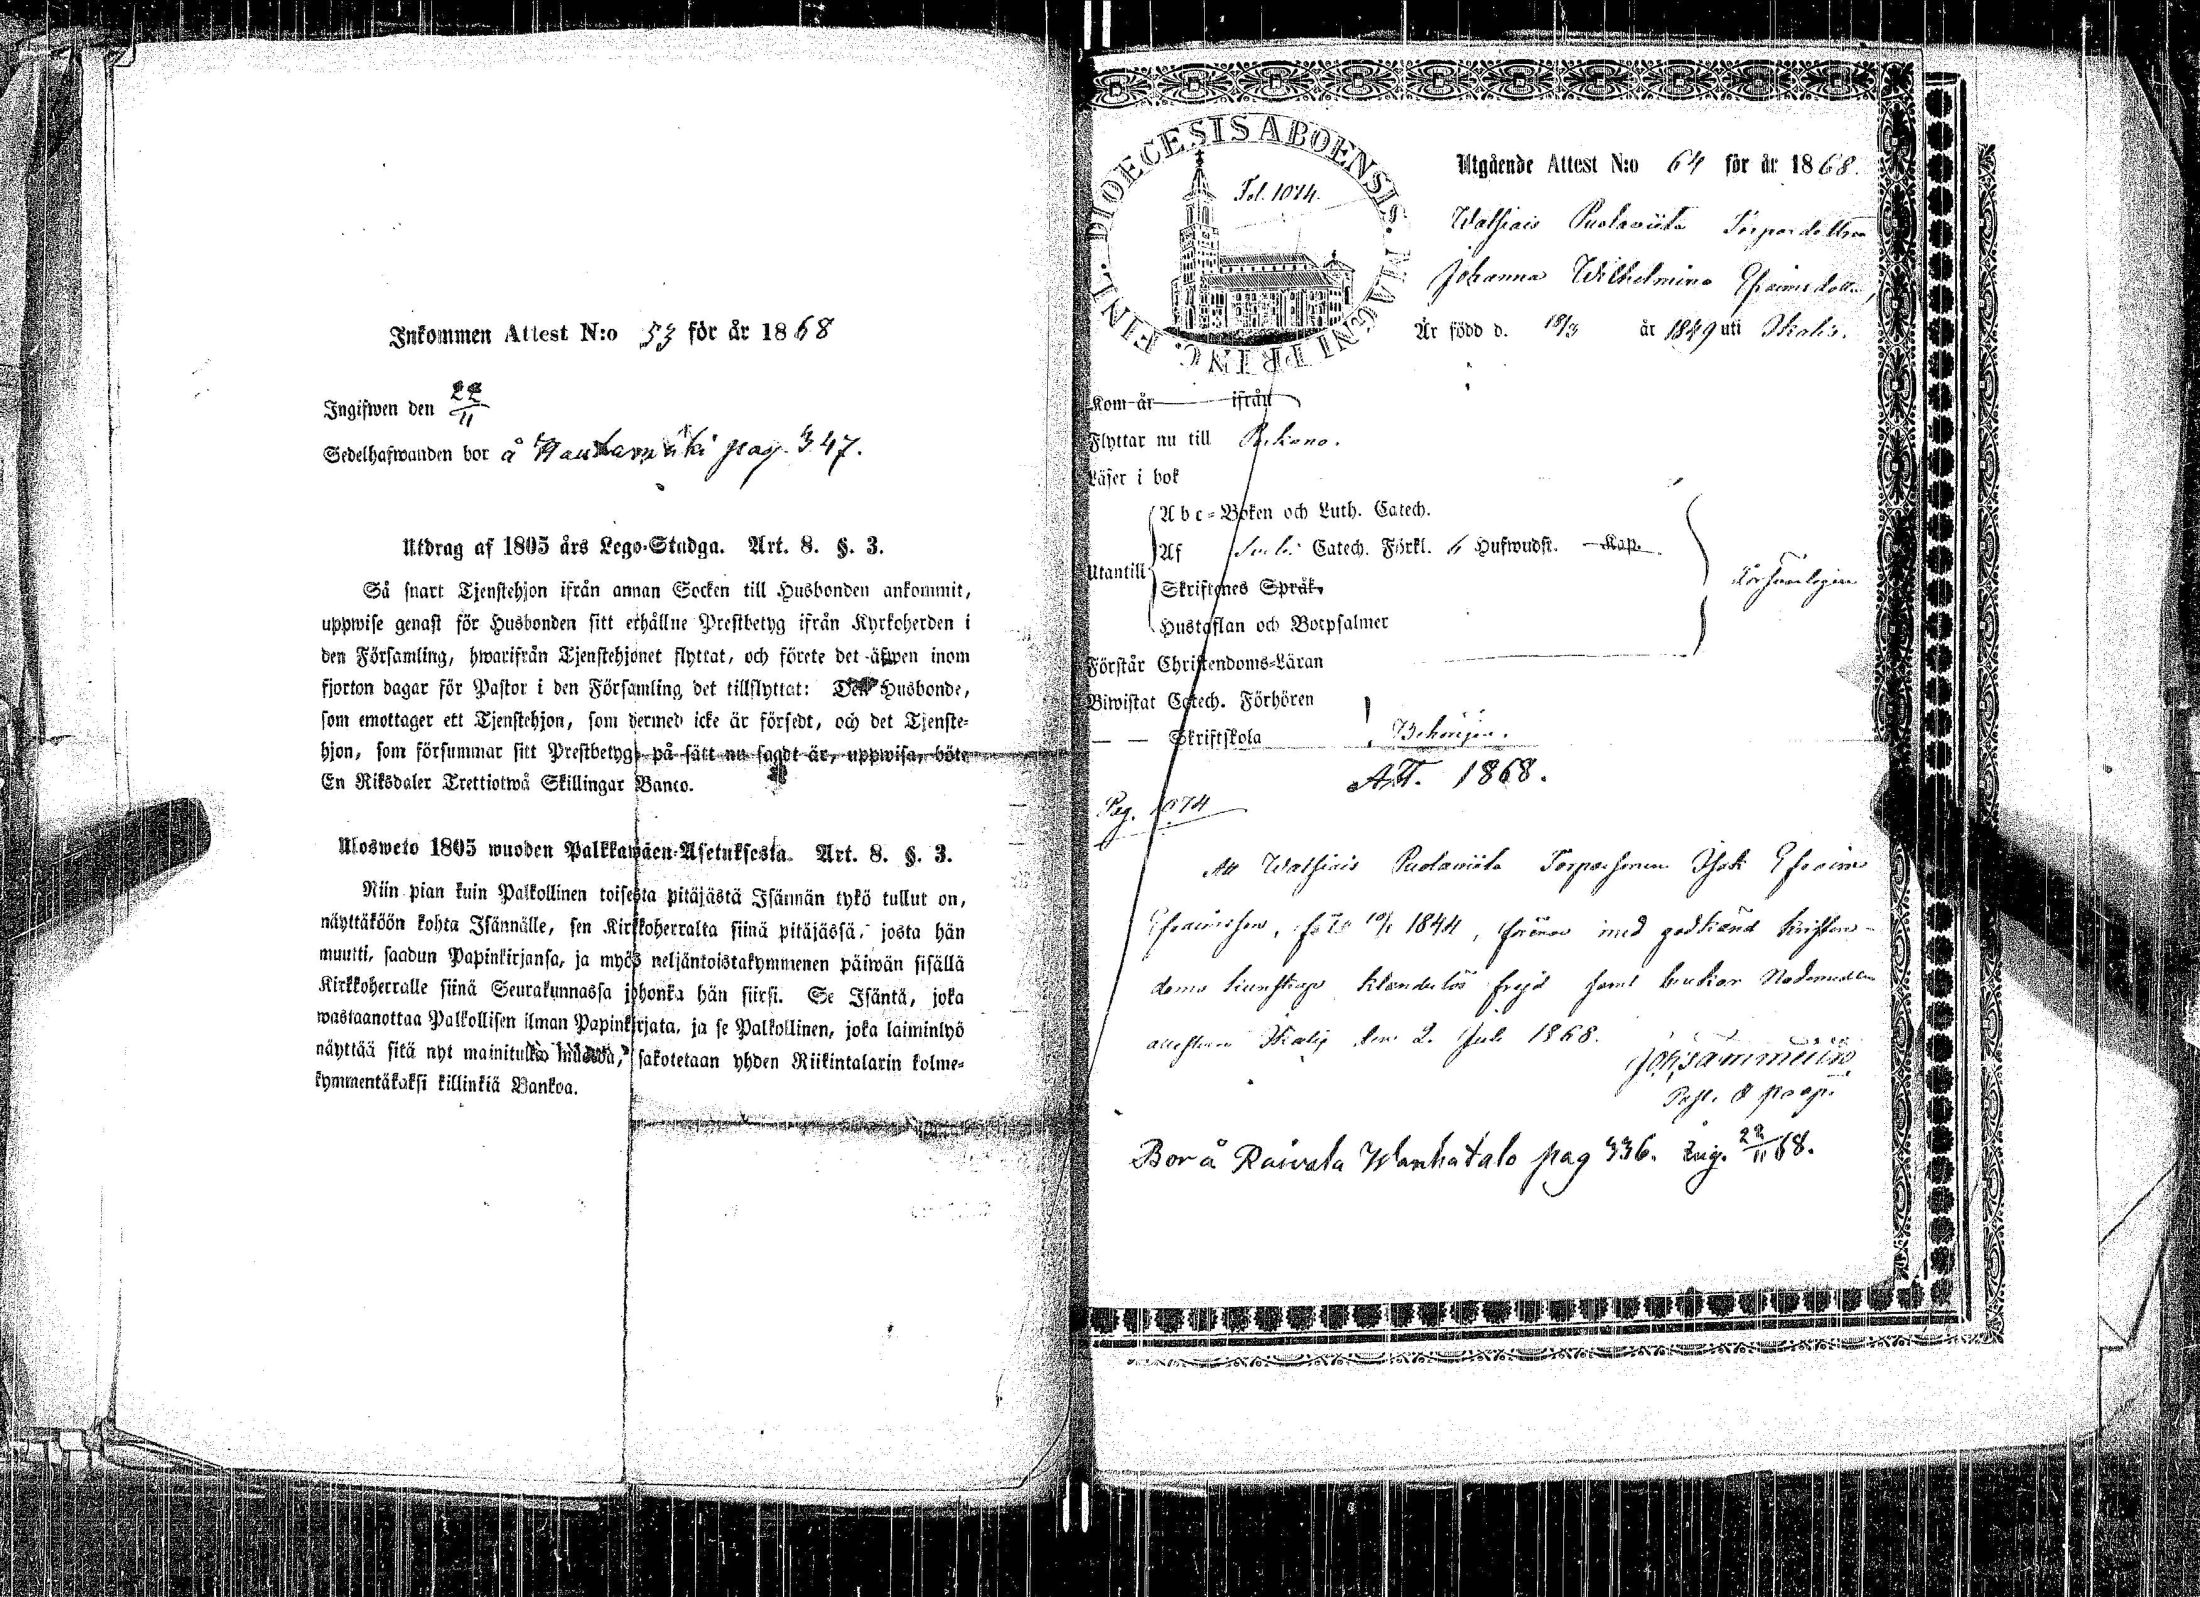 Inkommen Attest N:o 53 för år 1868
Ingifwen den 22/11
Sedelhafwanden bor å pag. 347.
Utdrag af 1805 års Lego-Stadga. Art. 8. §. 3.
Så snart Tjenstehjon ifrån annan Socken till Husbonden ankommit,
uppwise genast för Husbonden sitt erhållne Prestbetyg ifrån Kyrkoherden i
den Församling, hwarifrån Tjenstehjonet flyttat, och förete det äfwen inom
fjorton dagar för Pastor i den Församling det tillflyttat: Den Husbonde,
som emottager ett Tjenstehjon, som dermed icke är försedt, och det Tjenste-
hjon, som försummar sitt Prestbetyg på sätt nu sagdt är, uppwisa, böte
En Riksdaler Trettiotwå Skillingar Banco.
Ulosweto 1805 wuoden Palkkawäen-Asetuksesta. Art. 8. §. 3.
Niin pian kuin Palkollinen toisesta pitäjästä Isännän tykö tullut on,
näyttäköön kohta Isännälle, sen Kirkkoherralta siinä pitäjässä, josta hän
muutti, saadun Papinkirjansa, ja myös neljäntoistakymmenen päiwän sisällä
Kirkkoherralle siinä Seurakunnassa johonka hän siirsi. Se Isäntä, joka
wastaanottaa Palkollisen ilman Papinkirjata, ja se Palkollinen, joka laiminlyö
näyttää sitä nyt mainitulla muowa, sakotetaan yhden Riikintalarin kolme-
kymmentäkaksi killinkiä Bankoa.
DIOECESIS ABOENSIS. MAGNI PRINC. FINL.
Fol. 1074.
Utgående Attest N:o 64 för år 1868.
Puolaviita
Johanna Wilhelmina Efraimsdotter,
Är född d. 18/3 år 1849 uti Ikalis.
Kom år ifrån
Flyttar nu till Parkano.
Läser i bok
Abc-Boken och Luth. Catech.
Utantill Af Catech. Förkl. 6 Hufwudst. Kap.
Skriftenes Språk,
Hustaflan och Botpsalmer
Förstår Christendoms-Läran
Biwistat Catech. Förhören
— — Skriftskola Behörigen.
A.T. 1868.
Pag. 1074
Att Puolaviita Torparsonen Isak Efraim
Efraimsson, född 1844, med godkänd kristen-
doms kunskap frejd samt brukar Nademedlen
Ikalis den 2. 1868.
Bor å Raivala Wanhatalo pag 336. Ing. 22/11 68.